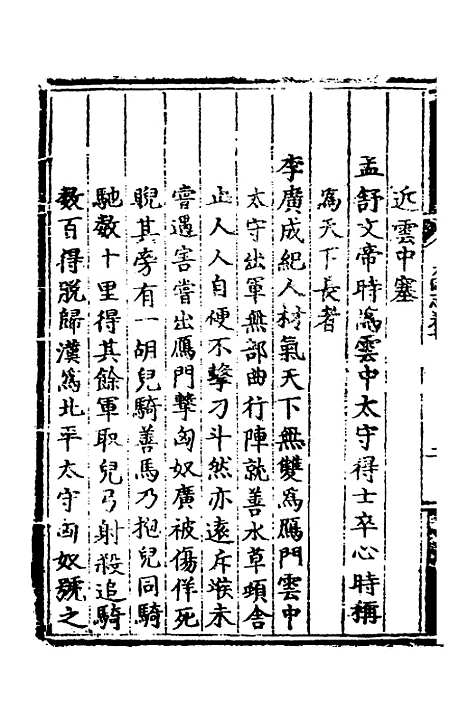 近雲中塞
孟舒文帝時爲雲中太守得士卒心時稱
爲天下長者
李廣成紀人材氣天下無雙爲鴈門雲中
太守出軍無部曲行陣就善水草頓舍
止人人自便不擊刁斗然亦遠斥堠未
嘗遇害嘗出鴈門擊匈奴廣被傷佯死
睨其旁有一胡兒騎善馬乃抱兒同騎
馳数十里得其餘軍取兒弓射殺追騎
数百得脱歸漢爲北平太守匈奴號之